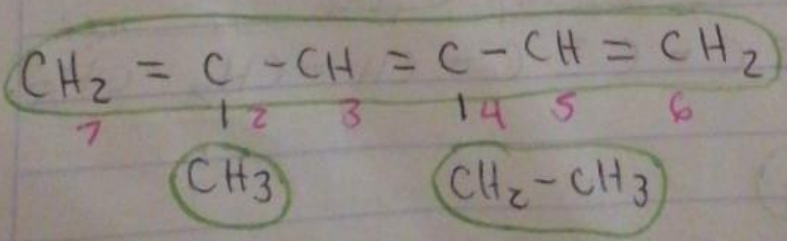 CH₂ = C - CH = C - CH = CH₂
1 2 3 4 5 6
CH3 CH₂ - CH3